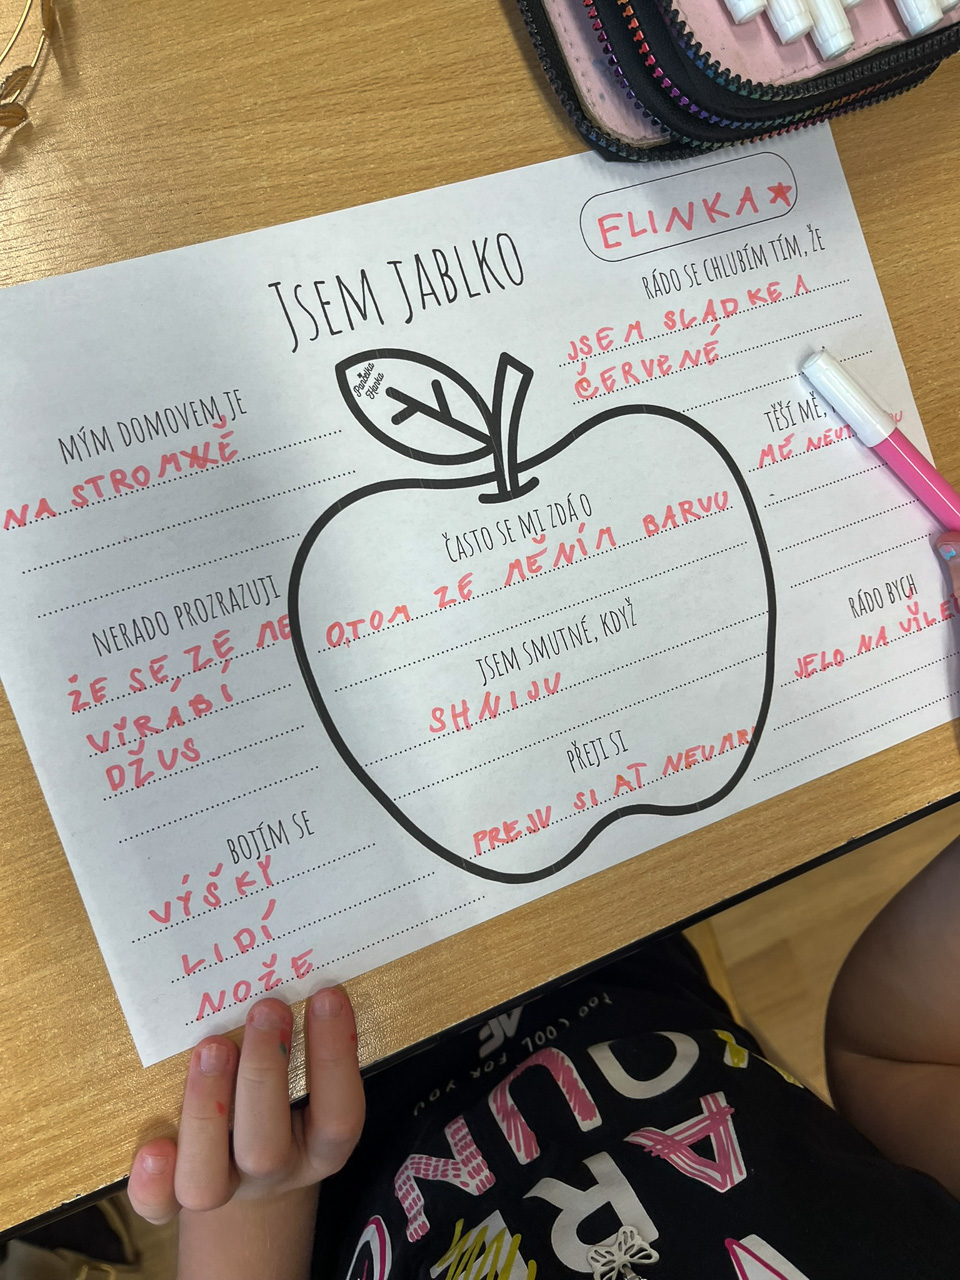 ELINKA
JSEM JABLKO
RÁDO SE CHLUBÍM TÍM, ŽE
JSEM SLADKE A
ČERVENÉ
Pančelka
Hanka
MÝM DOMOVEM JE
NA STROMKĚ
TĚŠÍ MĚ,
MĚ
ČASTO SE MI ZDÁ O
OTOM ZE MĚNÍM BARVU
NERADO PROZRAZUJI
ŽE SE ZE
VÍRÁBI
DŽUS
JSEM SMUTNÉ, KDYŽ
SHNIJU
RÁDO BYCH
JELO NA
PŘEJI SI
PREJU SI AŤ
BOJÍM SE
VÝŠKY
LIDÍ
NOŽE
TOO COOL FOR YOU